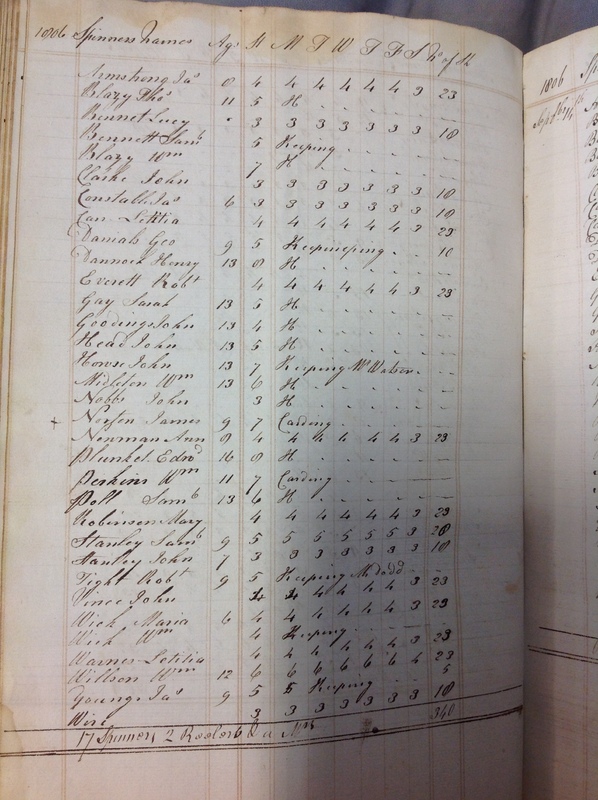 1806 Spinners Names Age St M T W T F S No of Sk
Armstrong Jas 8 4 4 4 4 4 4 3 23
Blazy Thos 11 5 H
Bennet Lucy 3 3 3 3 3 3 3 18
Bennett Saml 5 Keeping
Blazy Wm 7 H
Clarke John 3 3 3 3 3 3 3 18
Constable Jas 6 3 3 3 3 3 3 3 18
Can Letitia 4 4 4 4 4 4 3 23
Daniels Geo 9 5 Keepineeping 10
Dannock Henry 13 8 H
Everett Robt 4 4 4 4 4 4 3 23
Gay Sarah 13 5 H
Goodings John 13 4 H
Head John 13 5 H
Howse John 13 7 Keeping W Watson
Midleton Wm 13 6 H
Nobbs John 3 H
+ Neyson James 9 7 Carding
Newman Ann 8 4 4 4 4 4 4 3 23
Plunket Edwd 16 8 H
Perkins Wm 11 7 Carding
Poll Saml 13 6 H
Robinson Mary 4 4 4 4 4 4 3 23
Stanley Saml 9 5 5 5 5 5 5 3 28
Stanley John 7 3 3 3 3 3 3 3 18
Tight Robt 9 5 Keeping M dodd
Vince John 4 4 4 4 4 4 3 23
Wick Maria 6 4 4 4 4 4 4 3 23
Wick Wm 4 Keeping
Warnes Letitia 4 4 4 4 4 4 3 23
Willson Wm 12 6 6 6 6 6 6 4 23
Youngs Jas 9 5 5 Keeping 5
Wire 3 3 3 3 3 3 3 18
340
17 Spinners 2 Reelers
1806 Spi